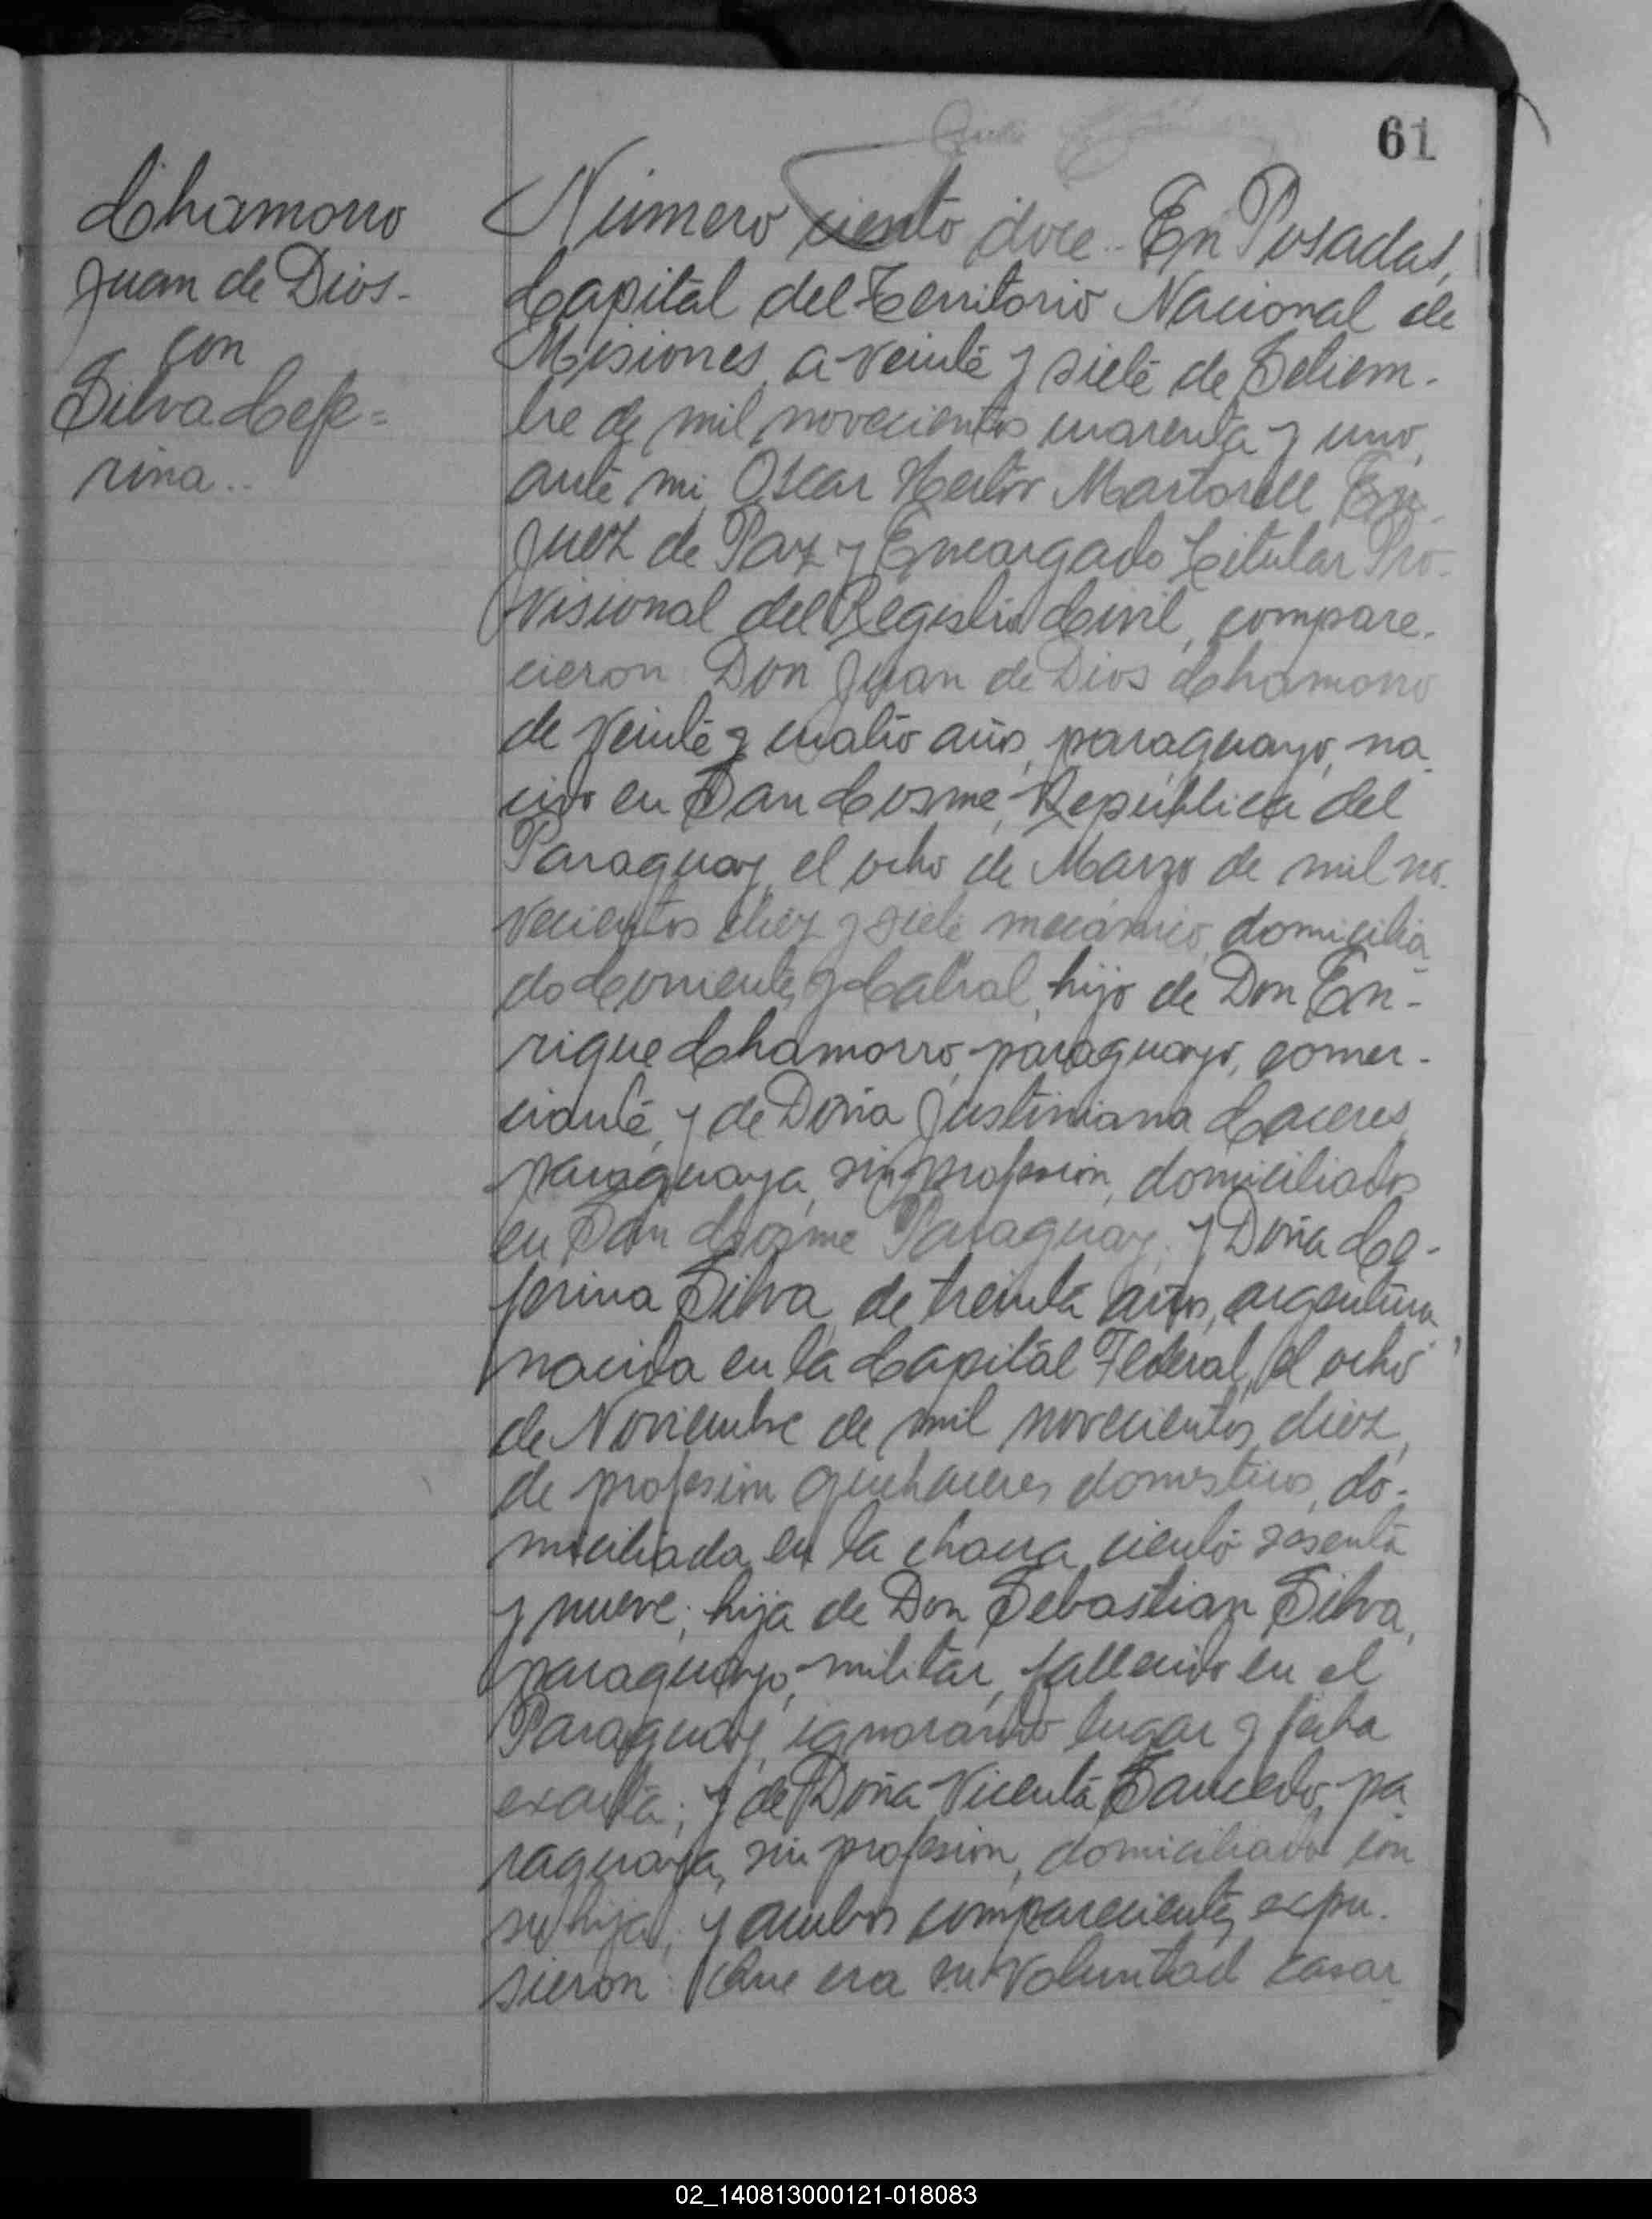 61
Chamorro
Juan de Dios-
con
Silva Cefe=
rina..
Número ciento doce.. En Posadas,
Capital del Territorio Nacional de
Misiones, a veinte y siete de Setiem-
bre de mil novecientos cuarenta y uno,
ante mi, Oscar Hector Martorell, En-
Juez de Paz y Encargado Titular Pro-
visional del Registro Civil, compare-
cieron Don Juan de Dios Chamorro
de veinte y cuatro años, paraguayo, na-
cido en San Cosme, República del
Paraguay, el ocho de Marzo de mil no-
vecientos diez y siete mecánico, domicilia-
do Corrientes y Cabral, hijo de Don En-
rique Chamorro, paraguayo, comer-
ciante, y de Doña Justiniana Caceres,
paraguaya, sin profesion, domiciliados
en San Cosme Paraguay; y Doña Ce-
ferina Silva, de treinta años, argentina,
nacida en la Capital Federal, el ocho
de Noviembre de mil novecientos diez,
de profesion quehaceres domesticos, do-
miciliada en la chacra ciento sesenta
y nueve; hija de Don Sebastian Silva,
paraguayo, militar, fallecido en el
Paraguay, ignorando lugar y fecha
exacta; y de Doña Vicenta Saucedo, pa-
raguaya, sin profesion, domiciliada con
su hija; y ambos comparecientes expu-
sieron: Que era su voluntad casar-
02_140813000121-018083